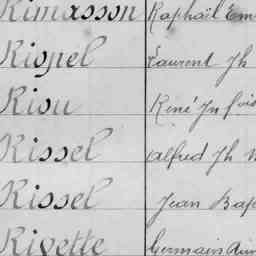 Rimasson Raphaël Em
Riopel Laurent Jh
Riou René Jn fois
Rissel Alfred Jh
Rissel Jean Bap
Rivette Germain